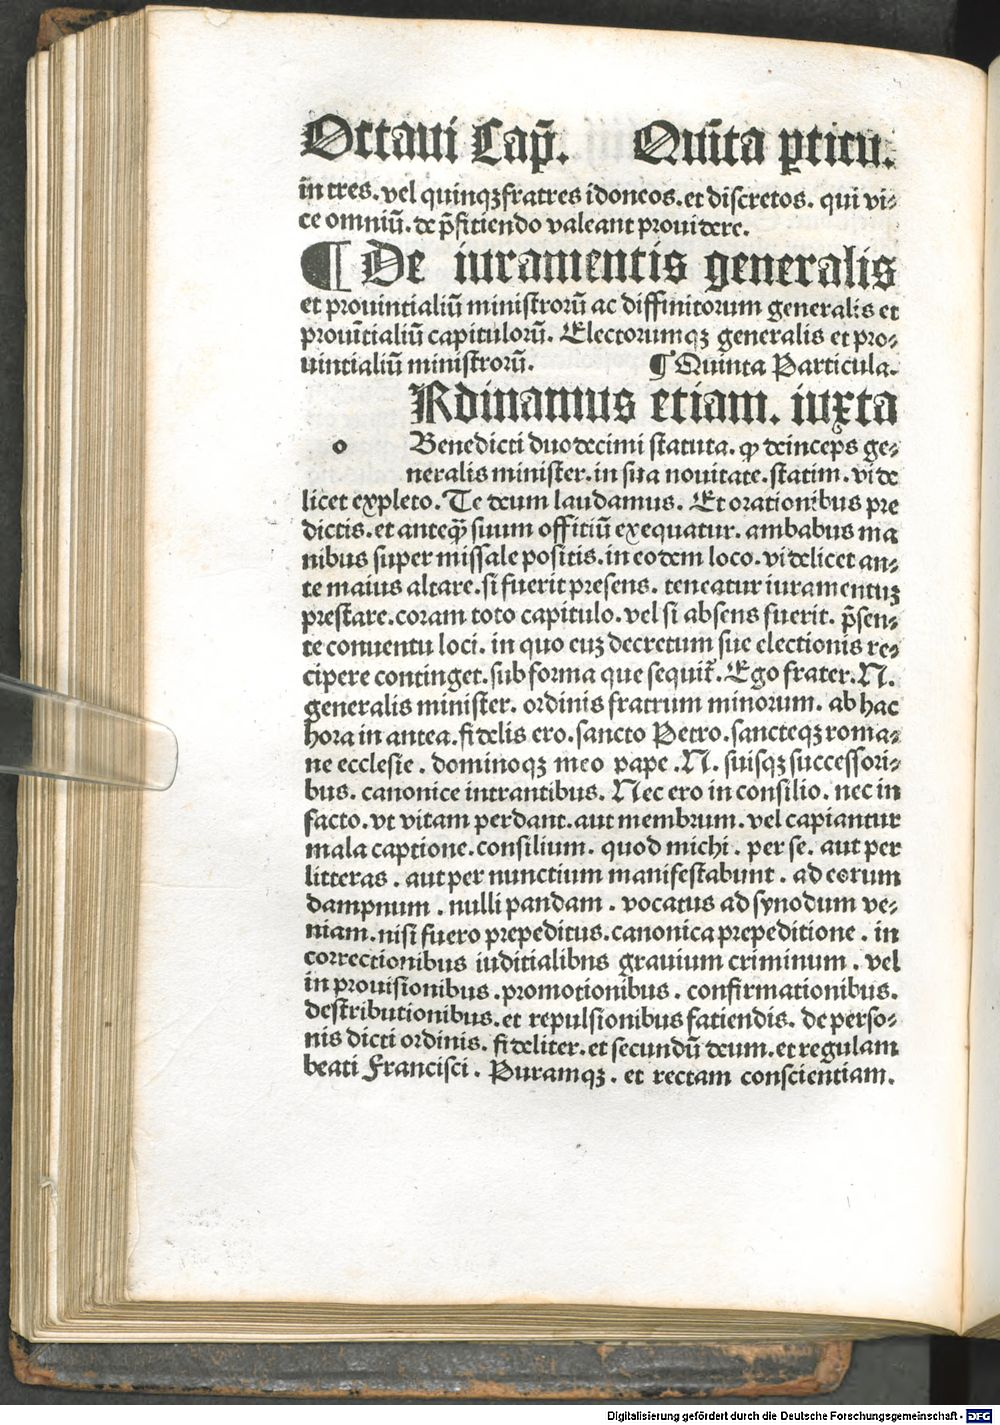 Octaui Cap̄. Quīta pticu.
in̄ tres. vel quinqꝫ fratres idoneos. et discretos. qui vi⸗
ce omniū. de p̄ficiendo valeant prouidere.
¶ De iuramentis generalis
et prouintialiū ministrorū ac diffinitorum generalis et
prouītialiū capitulorū. Electorumqꝫ generalis et pro⸗
uintialiū ministrorū. ¶ Quinta Particula.
Rdinamus etiam. iuxta
o Benedicti duodecimi statuta. ꝙ deinceps ge⸗
neralis minister. in sua nouitate. statim. vide
licet expleto. Te deum laudamus. Et orationibus pre
dictis. et anteq̄ suum offitiū exequatur. ambabus ma
nibus super missale positis. in eodem loco. videlicet an⸗
te maius altare. si fuerit presens. teneatur iuramentuꝫ
prestare. coram toto capitulo. vel si absens fuerit. p̄sen⸗
te conuentu loci. in quo euꝫ decretum sue electionis re⸗
cipere continget. sub forma que sequit᷑. Ego frater. N.
generalis minister. ordinis fratrum minorum. ab hac
hora in antea. fidelis ero. sancto Petro. sancteqꝫ roma⸗
ne ecclesie. dominoqꝫ meo pape. N. suisqꝫ successori⸗
bus. canonice intrantibus. Nec ero in consilio. nec in
facto. vt vitam perdant. aut membrum. vel capiantur
mala captione. consilium. quod michi. per se. aut per
litteras. aut per nunctium manifestabunt. ad eorum
dampnum. nulli pandam. vocatus ad synodum ve⸗
niam. nisi fuero prepeditus. canonica prepeditione. in
correctionibus iuditialibns grauium criminum. vel
in prouisionibus. promotionibus. confirmationibus.
destributionibus. et repulsionibus fatiendis. de perso⸗
nis dicti ordinis. fideliter. et secundū deum. et regulam
beati Francisci. Puramqꝫ. et rectam conscientiam.
Digitalisierung gefördert durch die Deutsche Forschungsgemeinschaft - DFG